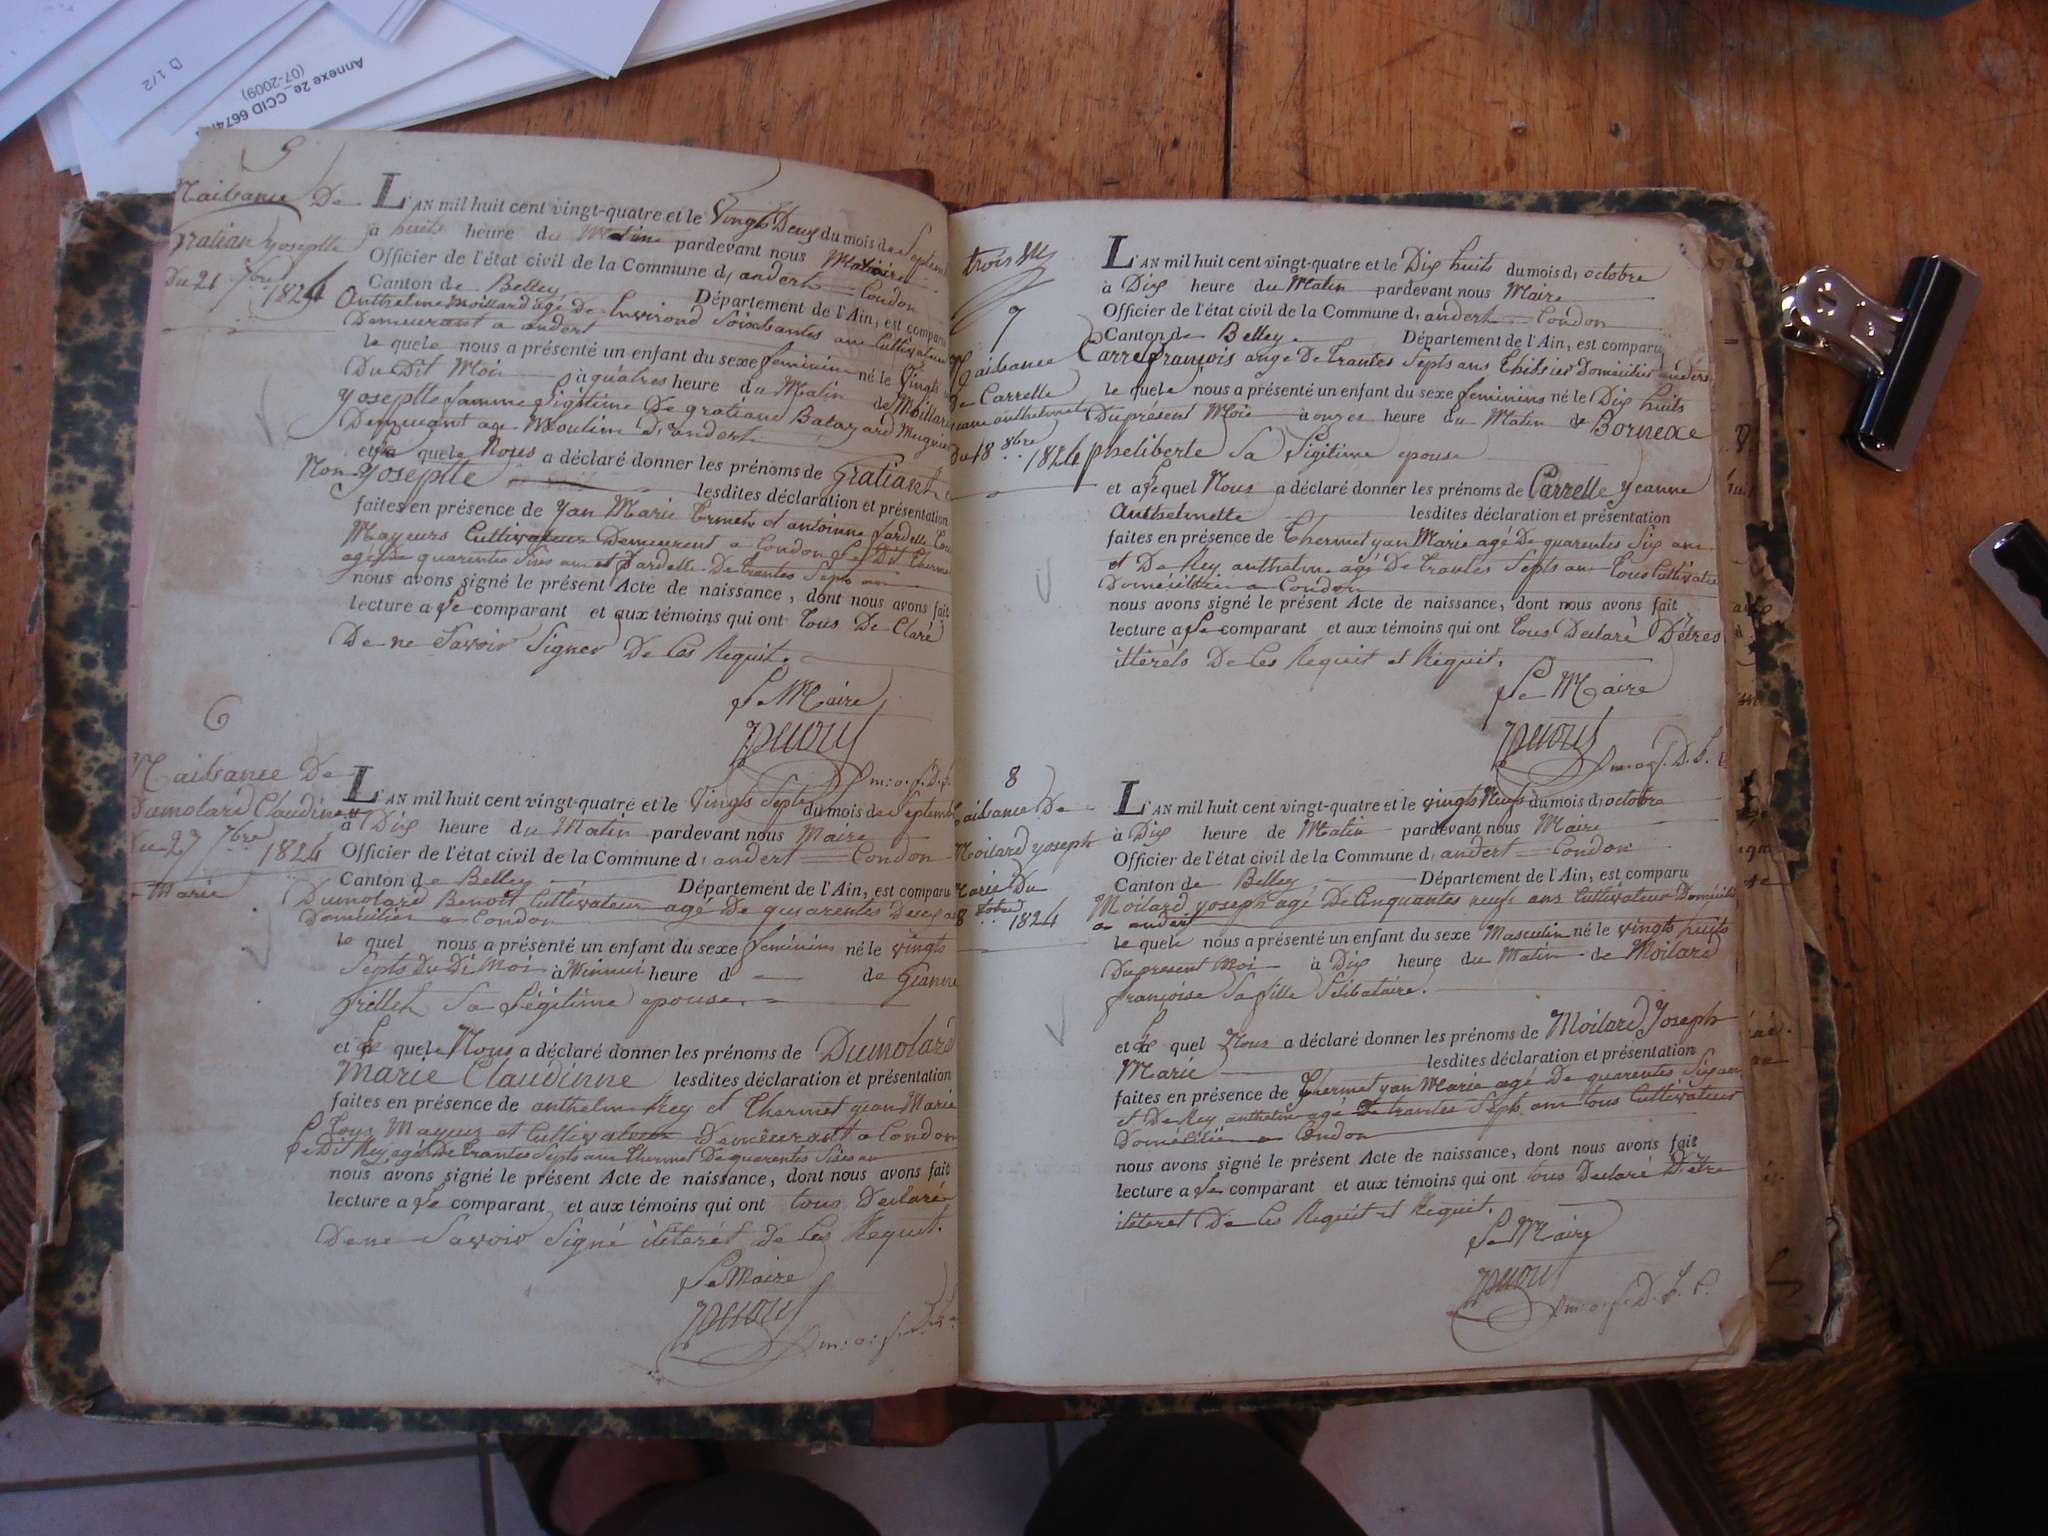 D 1/2
Annexe 2e_CCID 6674
(07-2009)
5
Naissance De
gratian yoseptte
Du 21 7bre 1824
L'AN mil huit cent vingt-quatre et le Vingts Deux du mois de Septem
à huits heure du Matin pardevant nous
Officier de l'état civil de la Commune d, andert = Condon
Canton de Belley Département de l'Ain, est comparu
Anthelme Moillard agé De Environd Soixsantes ans Cultivateur
Demeurant a andert
le quele nous a présenté un enfant du sexe feminin né le Vingts
Du Dit Mois à quatres heure du Matin de Moillard
yoseptte famme Ligitime De gratiand Batayard
Demeurant au Moulin D'andert
et le quele Nous a déclaré donner les prénoms de Gratiant
Non yoseptte lesdites déclaration et présentation
faites en présence de yan Marie termet et antoinne fardelle tous
Mayeurs Cultivateur Demeurent a Condon Le Dit therme
agé De quarentes Sixes ans et fardelle De trantes Septs ans
nous avons signé le présent Acte de naissance, dont nous avons fait
lecture a Le comparant et aux témoins qui ont tous De Claré
De ne Savoir Signer De Ces Requit.
Le Maire
m: o. f. D. f.
6
Naissance De
Dumolard Claudinne
Du 27 7bre 1824
Marie
L'AN mil huit cent vingt-quatre et le Vingts Septs du mois de Septembre
à Dix heure du Matin pardevant nous Maire
Officier de l'état civil de la Commune d, andert = Condon
Canton de Belley Département de l'Ain, est comparu
Dumolard Benoit Cultivateur agé De quarentes Deux ans
Domicilier a Condon
le quel nous a présenté un enfant du sexe feminins né le vingts
Septs du Di Moi à Minui heure d de Gianne
frillet Sa Légitime epouse.
et Le quele Nous a déclaré donner les prénoms de Dumolard
Marie Claudinne lesdites déclaration et présentation
faites en présence de anthelm Rey et Thermet yean Marie
tous Mayeur et Cultivateur Demeurant a Condon
Le Dit Rey agé De trantes Septs ans thermet De quarentes Sixes an
nous avons signé le présent Acte de naissance, dont nous avons fait
lecture a Le comparant et aux témoins qui ont tous Declaré
De ne Savoir Signé iliterés de Ces Requit.
Le Maire
m: o: f. D. f.
trois
7
Naissance
De Carrelle
yeanne anthelmette
Du 18 8bre 1824
L'AN mil huit cent vingt-quatre et le Dix huits du mois d, octobre
à Dix heure du Matin pardevant nous Maire
Officier de l'état civil de la Commune d, andert = Condon
Canton de Belley Département de l'Ain, est comparu
Carrel françois ange De trantes Septs ans Domicilier andert
le quele nous a présenté un enfant du sexe feminins né le Dix huits
Du present Mois à onzes heure du Matin de Bornexe
pheliberte Sa Ligitime epouse
et a Lequel Nous a déclaré donner les prénoms de Carrelle yeanne
Anthelmette lesdites déclaration et présentation
faites en présence de Thermet yan Marie agé De quarentes Six ans
et De Rey anthelm agé De trantes Septs ans tous Cultivateur
Domicilier a Condon
nous avons signé le présent Acte de naissance, dont nous avons fait
lecture a Le comparant et aux témoins qui ont tous Declaré D'êtres
ittérets De Ces Requit et Requit.
Le Maire
m: o. f. D. L.
8
Naissance De
Moilard yoseph
Marie Du
28 8tobre 1824
L'AN mil huit cent vingt-quatre et le vingts Neufs du mois d, octobre
à Dix heure de Matin pardevant nous Maire
Officier de l'état civil de la Commune d, andert = Condon
Canton de Belley Département de l'Ain, est comparu
Moilard yoseph agé De Cinquantes neufs ans Cultivateur Domicilié
a andert
le quele nous a présenté un enfant du sexe Masculin né le vingts huits
Du present Moi à Dix heure du Matin de Moilard
françoise Sa fille Selibataire.
et Le quel Nous a déclaré donner les prénoms de Moilard Yoseph
Marie lesdites déclaration et présentation
faites en présence de Thermet yan Marie agé De quarentes Six an
et De Rey anthelm agé De trantes Septs ans tous Cultivateur
Domicilié a Condon
nous avons signé le présent Acte de naissance, dont nous avons fait
lecture a Le comparant et aux témoins qui ont tous Declaré D'être
iliteret De Ces Requit et Requit.
Le Maire
m: o. f. D. L. P.